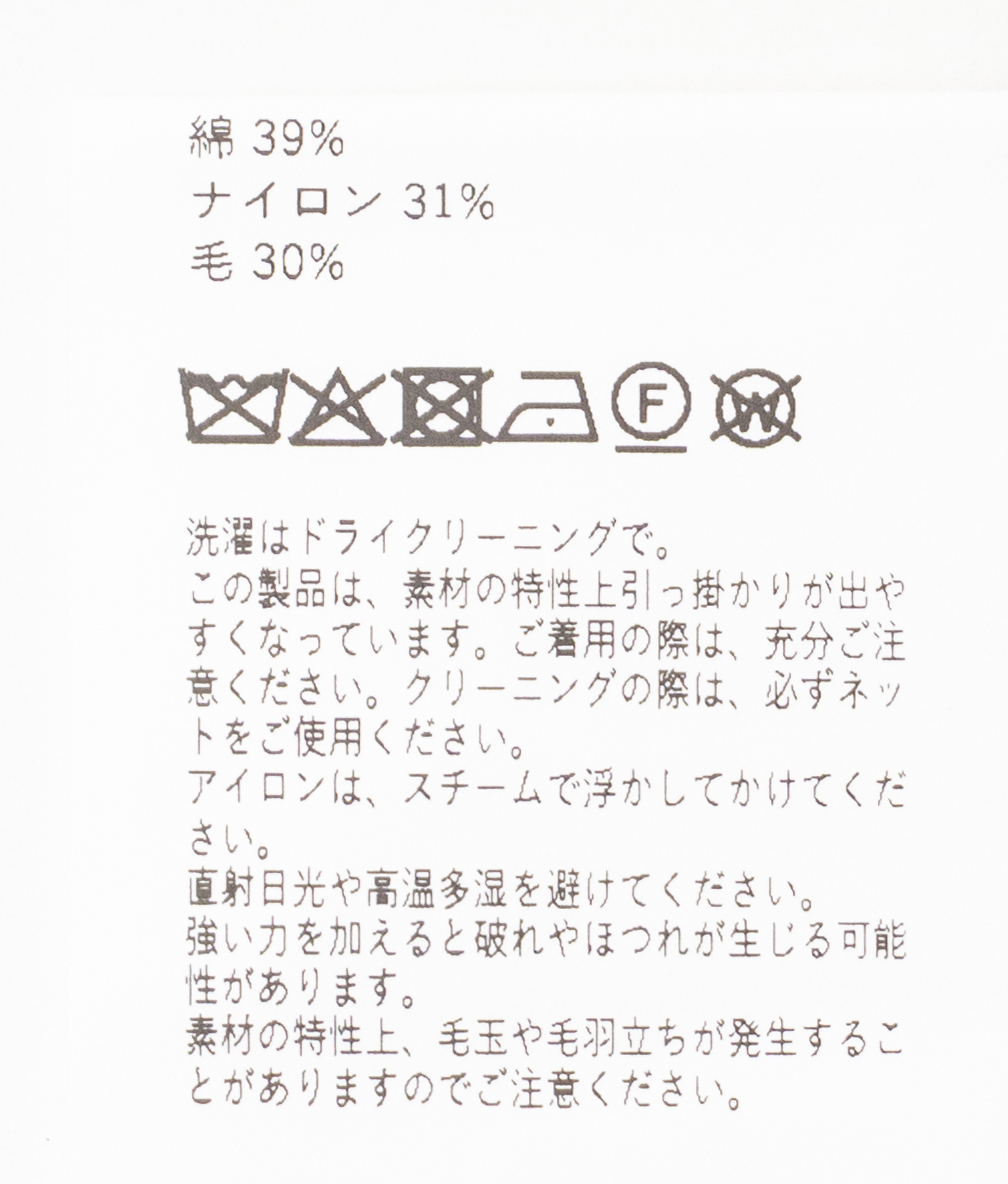 綿 39%
ナイロン 31%
毛 30%
F W
洗濯はドライクリーニングで。
この製品は、素材の特性上引っ掛かりが出や
すくなっています。ご着用の際は、充分ご注
意ください。クリーニングの際は、必ずネッ
トをご使用ください。
アイロンは、スチームで浮かしてかけてくだ
さい。
直射日光や高温多湿を避けてください。
強い力を加えると破れやほつれが生じる可能
性があります。
素材の特性上、毛玉や毛羽立ちが発生するこ
とがありますのでご注意ください。